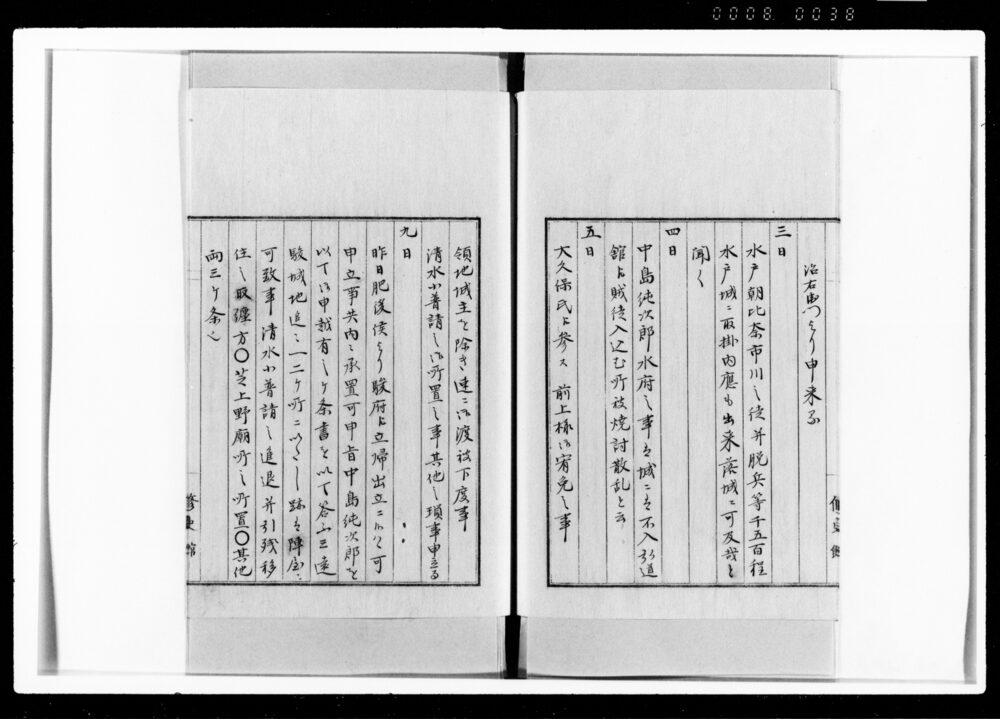 0008 0038
治右衛門ゟ申来る
三日
水戸朝比奈市川之徒并脱兵等千五百程
水戸城ニ取掛内應も出来落城ニ可及哉と
聞く
四日
中島純次郎水府之事を城ニハ不入弘道
館ゟ賊徒入込む所被焼討散乱と云
五日
大久保氏ゟ参ス 前上様御宥免之事
領地城主を除き速ニ御渡被下度事
清水小普請之御所置之事其他之瑣事申立る
九日
昨日肥後侯ゟ駿府ゟ立帰出立ニ付可
申立事共内々承置可申旨中島純次郎を
以て御申越有之ケ条書を以て答ふ三遠
駿城地追々一二ケ所ニいたし跡を陣屋ニ
可致事 清水小普請之進退并引残移
住之取纏方〇芝上野廟所之所置〇其他
両三ケ条也
修史館
修史館